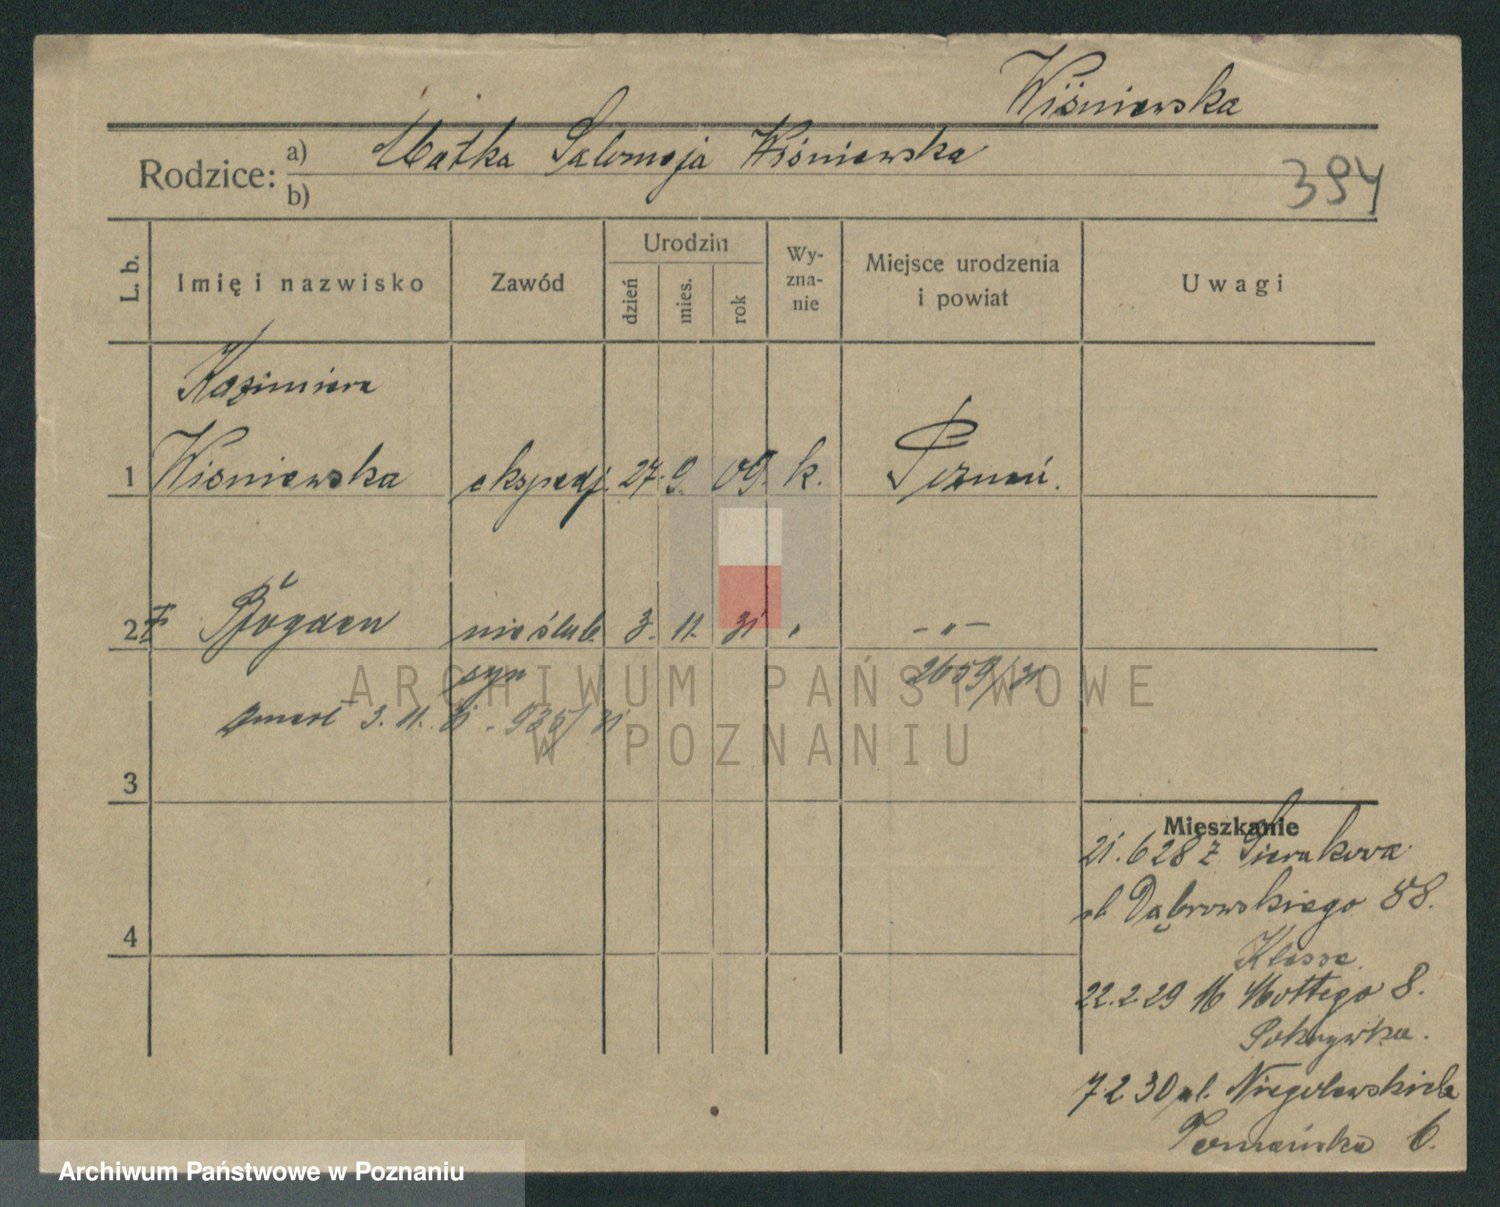 Wiśniewska
Rodzice: a) Matka Salomeja Wiśniewska
b)
394
L. b. Imię i nazwisko Zawód Urodzin dzień mies. rok Wy-zna-nie Miejsce urodzenia i powiat Uwagi
Kazimiera
1 Wiśniewska ekspedj. 27. 9. 09. k. Poznań.
2 Bogdan nieślub. 3. 11. 31 " - " -
syn 2659/31
zmarł 3. 11. 31 - 935/31
3
Mieszkanie
21. 6 28 z Sierakowa
ul. Dąbrowskiego 88.
4
Klosse
22. 2. 29 M Mottego 8.
Pokrywka.
7 2 30 ul. Niegolewskich
6.
ARCHIWUM PAŃSTWOWE
W POZNANIU
Archiwum Państwowe w Poznaniu